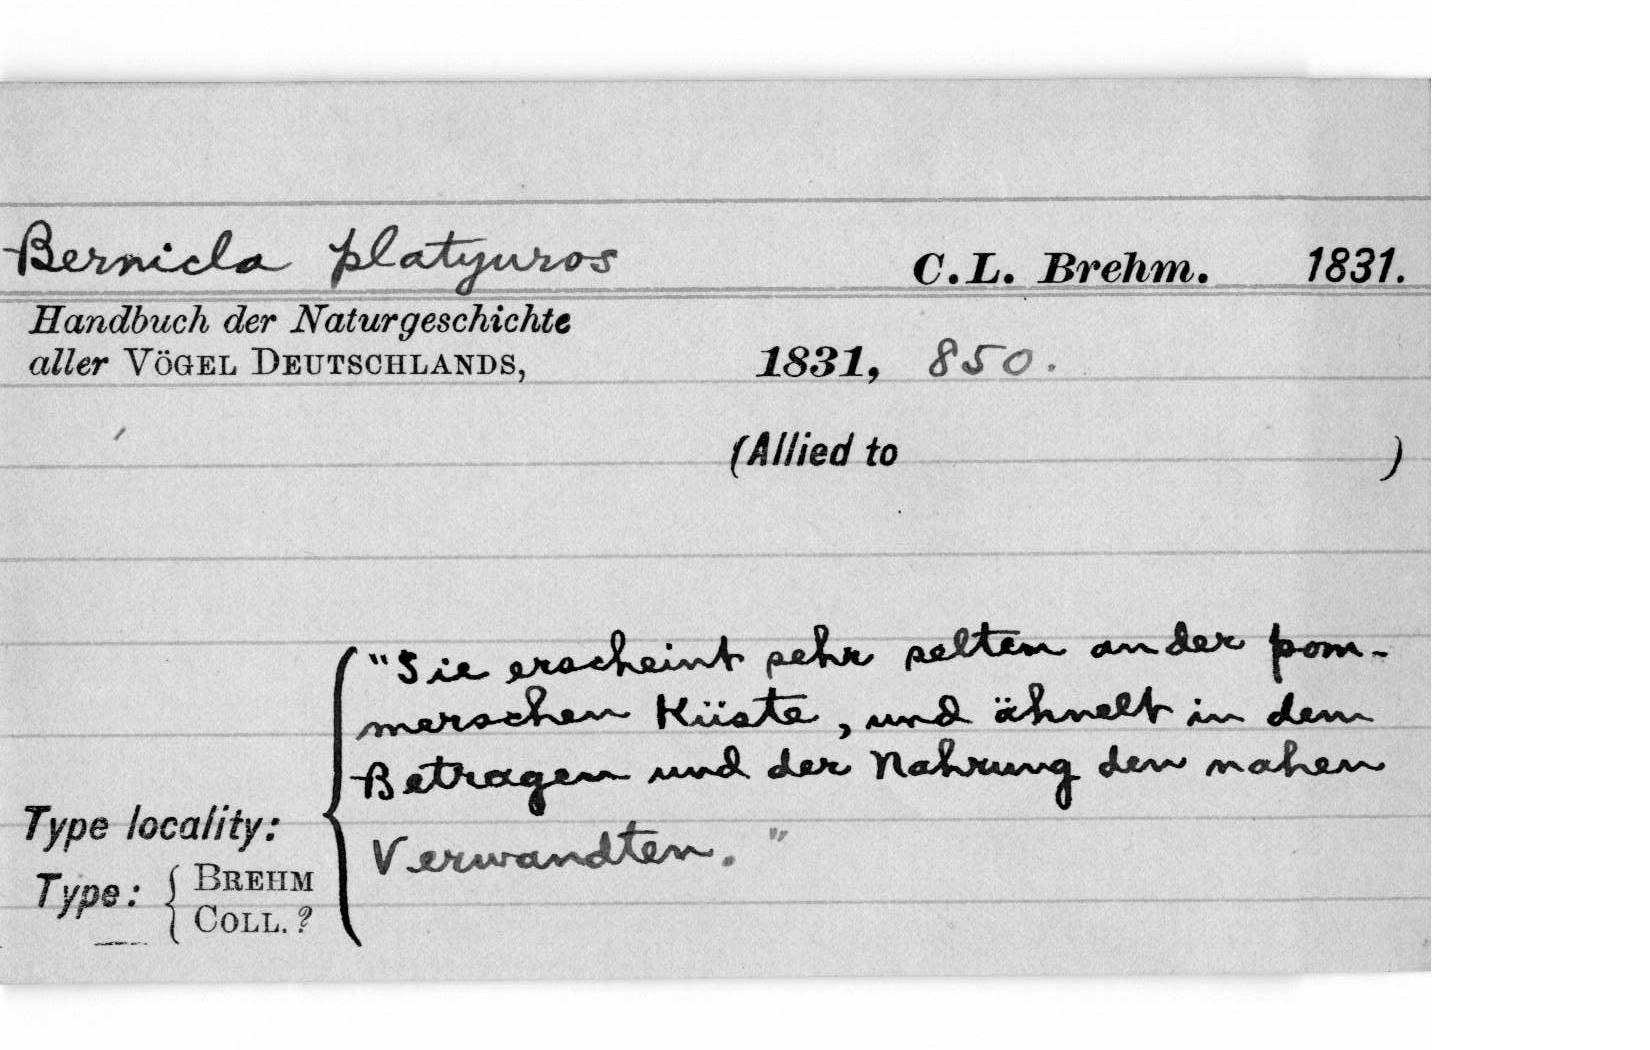 Bernicla platyuros C.L. Brehm. 1831.
Handbuch der Naturgeschichte
aller VÖGEL DEUTSCHLANDS, 1831, 850.
(Allied to )
"Sie erscheint sehr selten an der pom-
merschen Küste, und ähnelt in dem
Betragen und der Nahrung den nahen
Verwandten."
Type locality:
Type: { BREHM
COLL. ?